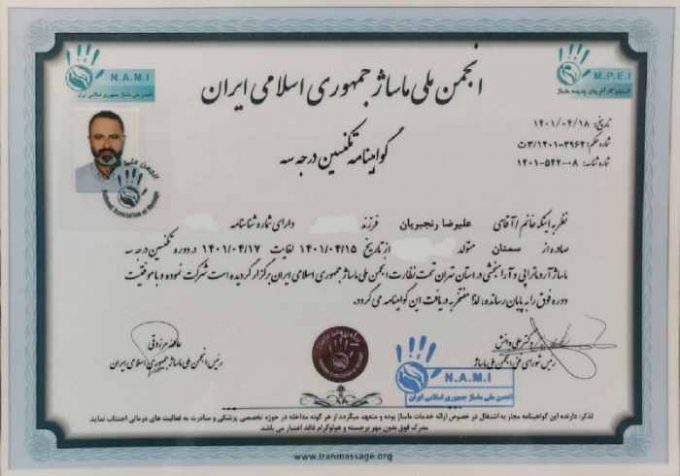 N.A.M.I
انجمن ملی ماساژ جمهوری اسلامی ایران
M.P.E.I
انجمن ملی ماساژ جمهوری اسلامی ایران
گواهینامه تکنسین درجه سه
تاریخ: ۱۴۰۱/۰۴/۱۸
شماره حکم: ۳۹۶۴-۳/۱۴۰۱ت
شماره شناسه: ۰۸-۵۴۲-۱۴۰۱
نظر به اینکه خانم / آقای علیرضا رنجبریان فرزند دارای شماره شناسنامه
صادره از سمنان متولد از تاریخ ۱۴۰۱/۰۴/۱۵ لغایت ۱۴۰۱/۰۴/۱۷ در دوره تکنسین درجه سه
ماساژ آروماتراپی و آرامبخشی در استان تهران تحت نظارت انجمن ملی ماساژ جمهوری اسلامی ایران برگزار گردیده است شرکت نموده و با موفقیت
دوره فوق را به پایان رسانده، لذا مفتخر به دریافت این گواهینامه می گردد.
دکتر علی دانش
رئیس شورای فنی انجمن ملی ماساژ
عاطفه مرزوقی
رئیس انجمن ملی ماساژ جمهوری اسلامی ایران
N.A.M.I
انجمن ملی ماساژ جمهوری اسلامی ایران
تذکر: دارنده این گواهینامه مجاز به اشتغال در خصوص ارائه خدمات ماساژ بوده و متعهد میگردد از هر گونه مداخله در حوزه تخصصی پزشکی و مبادرت به فعالیت های درمانی اجتناب نماید
مدرک فوق بدون مهر برجسته و هولوگرام فاقد اعتبار می باشد
www.iranmassage.org